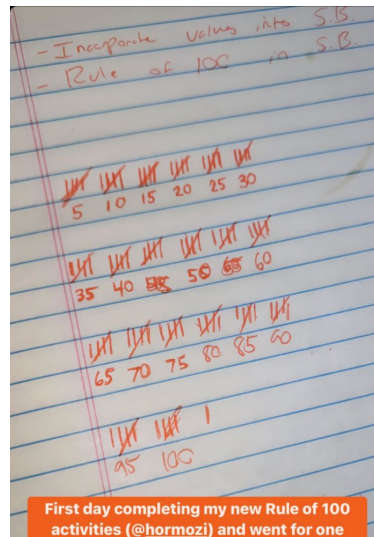 - Incorporate values into S.B.
- Rule of 100 in S.B.
5 10 15 20 25 30
35 40 50 60
65 70 75 80 85 90
95 100
First day completing my new Rule of 100
activities (@hormozi) and went for one